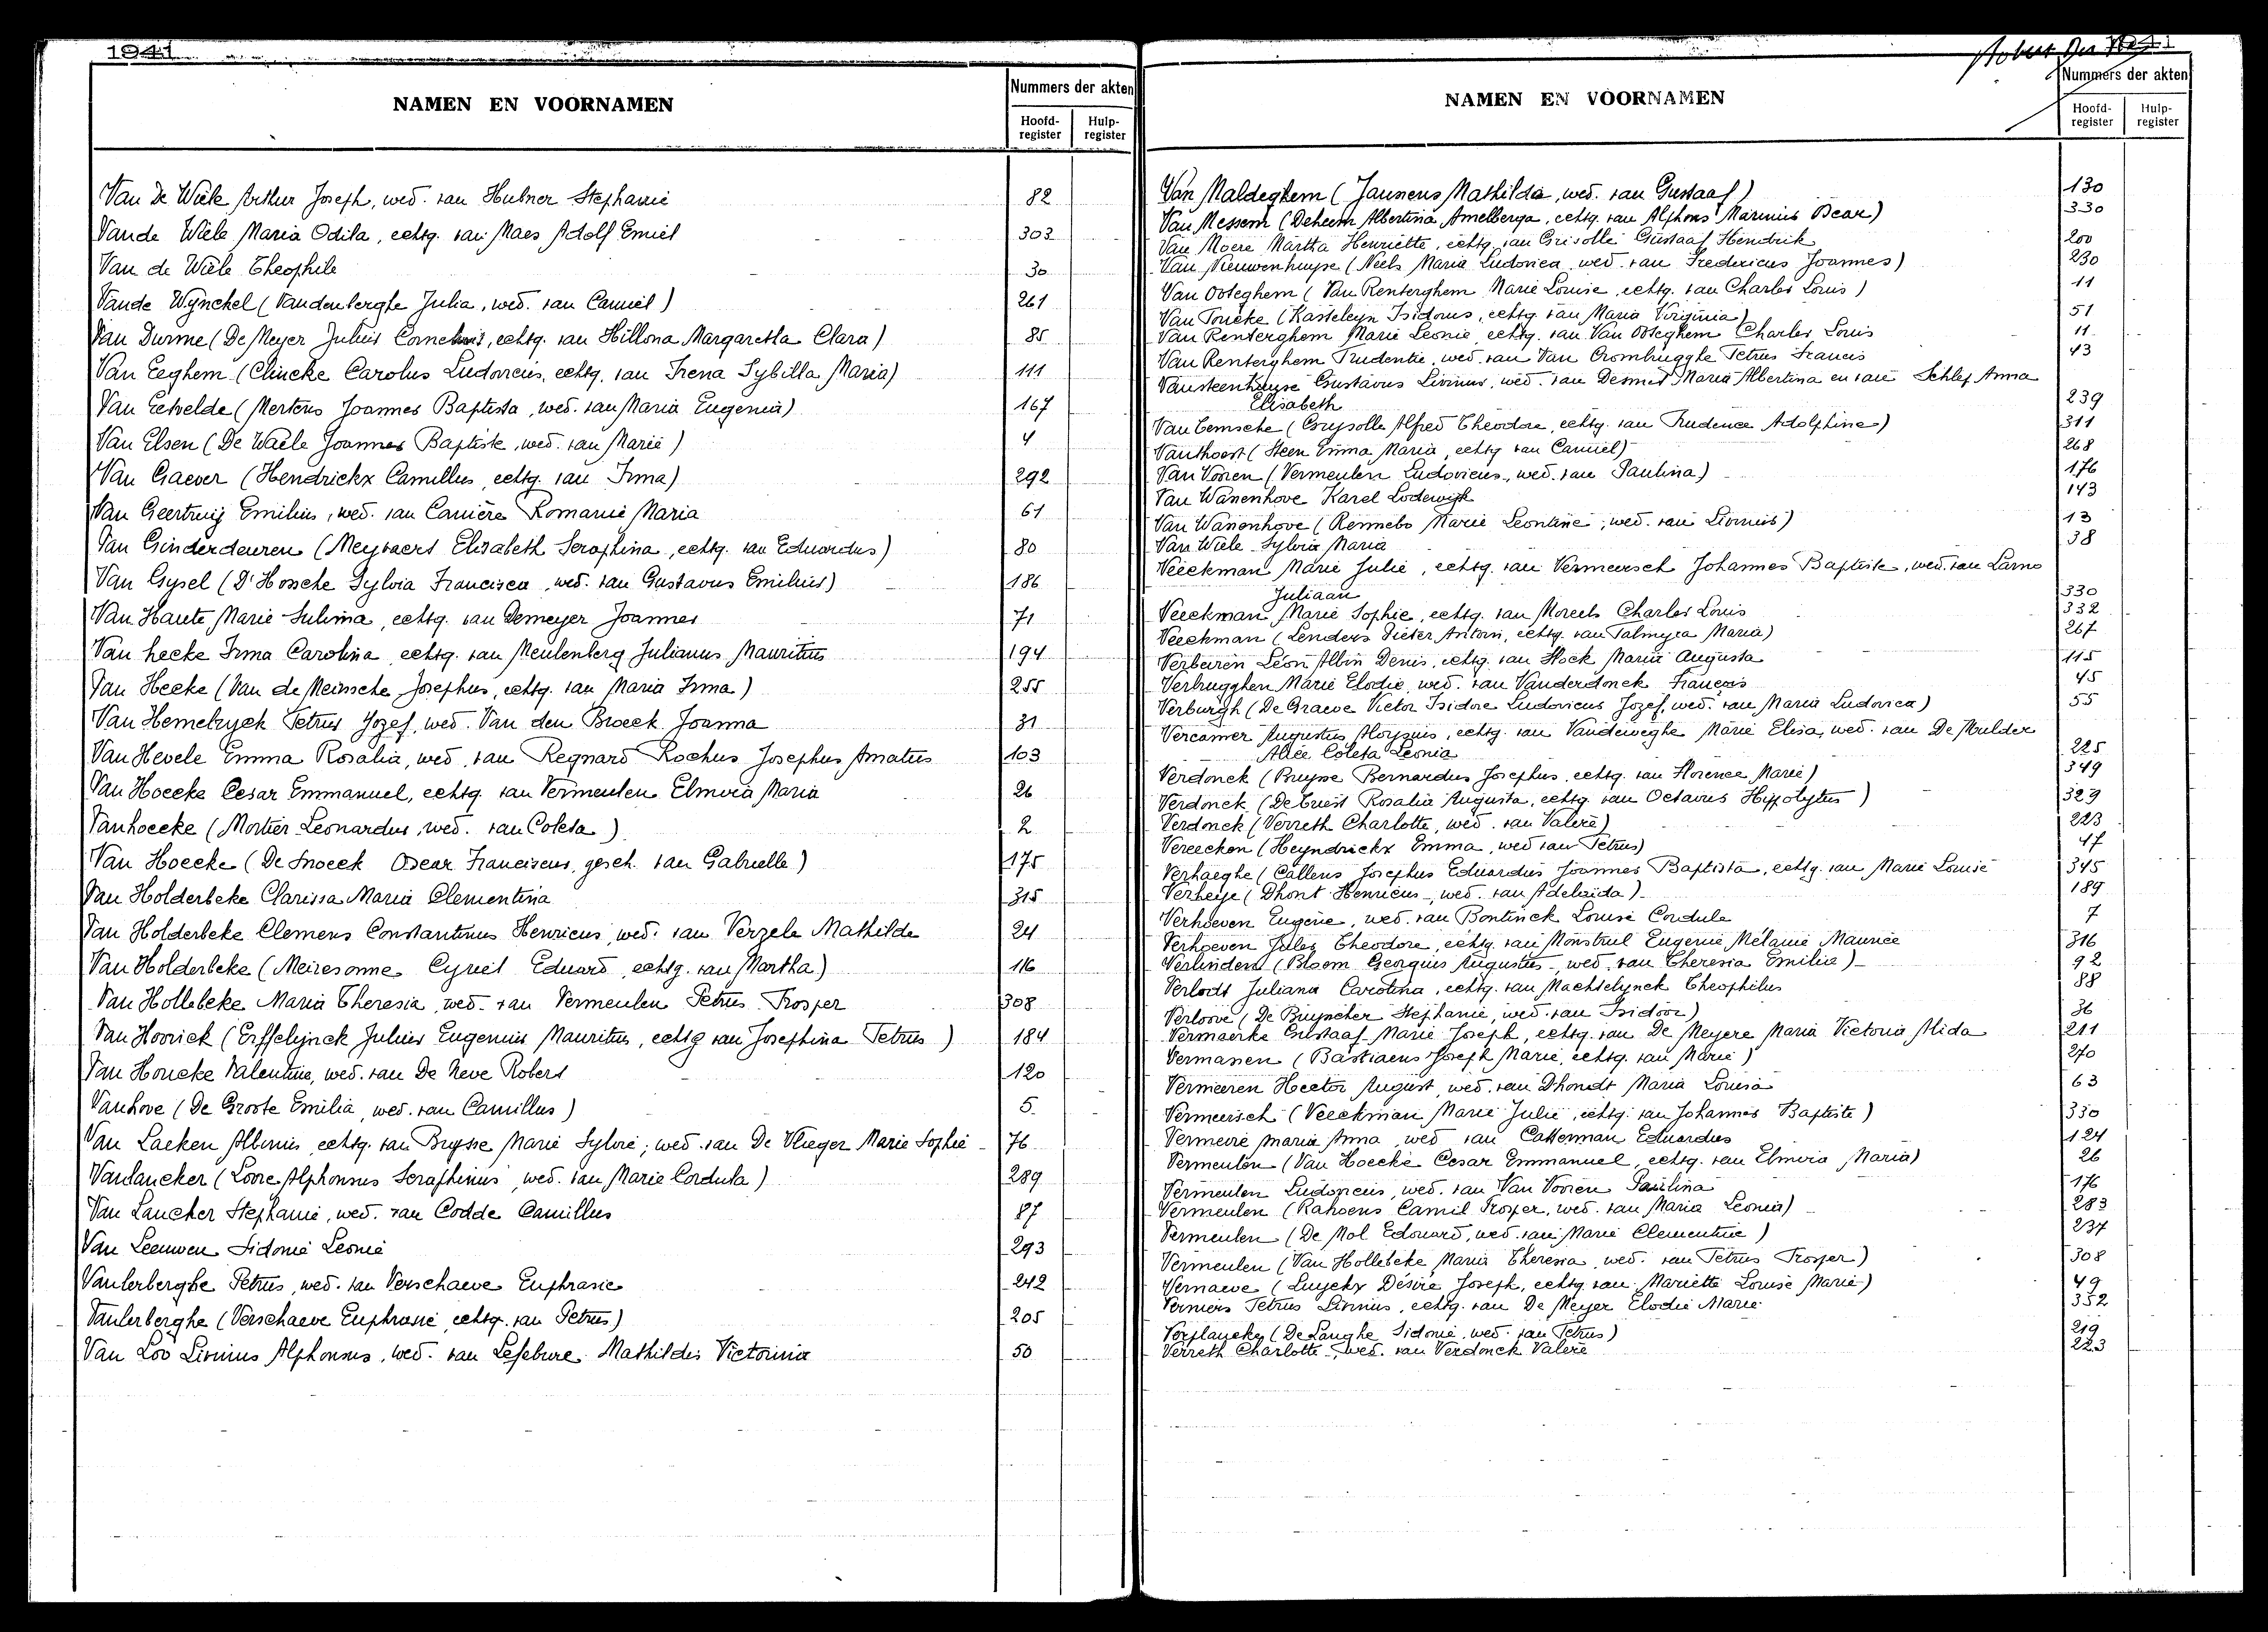 1941
NAMEN EN VOORNAMEN
Nummers der akten
Hoofd-register
Hulp-register
Van De Wiele Arthur Joseph, wed. van Hubner Stephanie 82
Vande Wiele Maria Odila, echtg. van Maes Adolf Emiel 303
Van de Wiele Theophile 30
Vande Wynckel (Vandenberghe Julia, wed. van Camiel) 261
Van Durme (De Meyer Julius Cornelius, echtg. van Hillona Margaretha Clara) 85
Van Eeghem (Clincke Carolus Ludovicus, echtg. van Irena Sybilla Maria) 111
Van Eetvelde (Mertens Joannes Baptista, wed. van Maria Eugenia) 167
Van Elsen (De Waele Joannes Baptiste, wed. van Marie) 4
Van Gaever (Hendrickx Camillus, echtg. van Irma) 292
Van Geertruij Emilius, wed. van Carrière Romanie Maria 61
Van Ginderdeuren (Meyvaert Elisabeth Seraphina, echtg. van Eduardus) 80
Van Gysel (D'Hossche Sylvia Francisca, wed. van Gustavus Emilius) 186
Van Haute Marie Sulima, echtg. van Demeyer Joannes 71
Van hecke Irma Carolina, echtg. van Meulenberg Julianus Mauritius 194
Van Hecke (Van de Meirssche Josephus, echtg. van Maria Irma) 255
Van Hemelryck Petrus Jozef, wed. Van den Broeck Joanna 31
Van Hevele Emma Rosalia, wed. van Regnard Rochus Josephus Amatus 103
Van Hoecke Cesar Emmanuel, echtg. van Vermeulen Elmira Maria 26
Vanhoecke (Mortier Leonardus, wed. van Coleta) 2
Van Hoecke (De Snoeck Oscar Franciscus, gesch. van Gabrielle) 175
Van Holderbeke Clarissa Maria Clementina 315
Van Holderbeke Clemens Constantinus Henricus, wed. van Verzele Mathilde 24
Van Holderbeke (Meiresonne Cyriel Eduard, echtg. van Martha) 116
Van Hollebeke Maria Theresia, wed. van Vermeulen Petrus Prosper 308
Van Hoorick (Erffelijnck Julius Eugenius Mauritus, echtg van Josephina Petrus) 184
Van Houcke Valentina, wed. van De Neve Robert 120
Vanhove (De Groote Emilia, wed. van Camillus) 5
Van Laeken Albinus, echtg. van Buysse Marie Sylvie; wed. van De Vlieger Marie Sophie 76
Vanlancker (Loore Alphonsus Seraphinus, wed. van Marie Cordula) 289
Van Laucker Stephanie, wed. van Codde Camillus 87
Van Leeuwen Sidonie Leonie 293
Vanlerberghe Petrus, wed. van Verschaeve Euphrasie 242
Vanlerberghe (Verschaeve Euphrasie, echtg. van Petrus) 205
Van Loo Livinus Alphonsus, wed. van Lefebure Mathildis Victorinia 50
1941
NAMEN EN VOORNAMEN
Nummers der akten
Hoofd-register
Hulp-register
Van Maldeghem (Janssens Mathilda, wed. van Gustaaf) 130
Van Messem (Deheem Albertina Amelberga, echtg. van Alphons Marinus Oscar) 330
Van Moere Martha Henriette, echtg. van Grisolle Gustaaf Hendrik 200
Van Nieuwenhuyse (Neels Maria Ludovica, wed. van Fredericus Joannes) 230
Van Ooteghem (Van Renterghem Marie Louise, echtg. van Charles Louis) 11
Van Poucke (Kasteleyn Isidorus, echtg. van Maria Virginia) 51
Van Renterghem Marie Leonie, echtg. van Van Ooteghem Charles Louis 11
Van Renterghem Prudentie, wed. van Van Crombrugghe Petrus Francis 43
Vansteenhuyse Gustavus Livinus, wed. van Desmet Maria Albertina en van Schlep Anna
Elisabeth 239
Van Temsche (Grysolle Alfred Theodore, echtg. van Prudence Adolphine) 311
Vanthoost (Steen Emma Maria, echtg van Camiel) 268
Van Vooren (Vermeulen Ludovicus, wed. van Paulina) 176
Van Wanenhove Karel Lodewijk 143
Van Wanenhove (Rennebo Marie Leontine, wed. van Livinus) 13
Van Wiele Sylvia Maria 38
Veeckman Marie Julie, echtg. van Vermeersch Johannes Baptiste, wed. van Larno
Juliaan 330
Veeckman Marie Sophie, echtg. van Moreels Charles Louis 332
Veeckman (Lenders Pieter Antoni, echtg. van Palmyra Maria) 267
Verbeiren Léon Albin Denis, echtg. van Hock Maria Augusta 115
Verbrugghen Marie Elodie, wed. van Vanderdonck François 45
Verburgh (De Graeve Victor Isidore Ludovicus Jozef, wed. van Maria Ludovica) 55
Vercamer Augustus Aloysius, echtg. van Vandeweghe Marie Elisa, wed. van De Mulder
Alice Coleta Leonia 225
Verdonck (Buysse Bernardus Josephus, echtg. van Florence Marie) 349
Verdonck (De Criest Rosalia Augusta, echtg. van Octavus Hippolytus) 329
Verdonck (Verreth Charlotte, wed. van Valere) 223
Vereecken (Heyndrickx Emma, wed van Petrus) 47
Verhaeghe (Callens Josephus Eduardus Joannes Baptista, echtg. van Marie Louise 345
Verheye (Dhont Henricus, wed. van Adelaida) 189
Verhoeven Eugenie, wed. van Bontinck Louise Cordula 7
Verhoeven Jules Theodore, echtg. van Monstrul Eugenie Mélanie Maurice 316
Verlinden (Bloem Georgius Augustus, wed. van Theresia Emilia) 92
Verlodt Juliana Carolina, echtg. van Machtelynck Theophilus 88
Verloove (De Bruyncker Stephanie, wed. van Isidoor) 36
Vermaerke Gustaaf Marie Joseph, echtg. van De Meyere Maria Victoria Alida 211
Vermanen (Bastiaens Joseph Marie, echtg. van Marie) 270
Vermeeren Hector August, wed. van Dhondt Maria Louisa 63
Vermeersch (Veeckman Marie Julie, echtg. van Johannes Baptiste) 330
Vermeire maria Anna, wed van Catterman Eduardus 124
Vermeulen (Van Hoecke Cesar Emmanuel, echtg. van Elmira Maria) 26
Vermeulen Ludovicus, wed. van Van Vooren Paulina 176
Vermeulen (Rahoens Camil Prosper, wed. van Maria Leonia) 283
Vermeulen (De Mol Edouard, wed. van Marie Clementine) 237
Vermeulen (Van Hollebeke Maria Theresia, wed. van Petrus Prosper) 308
Vernaeve (Luyckx Désiré Joseph, echtg. van Mariette Louise Marie) 49
Verniers Petrus Livinus, echtg. van De Meyer Elodie Marie 352
Verplancke (De Langhe Sidonie, wed. van Petrus) 219
Verreth Charlotte, wed. van Verdonck Valere 223